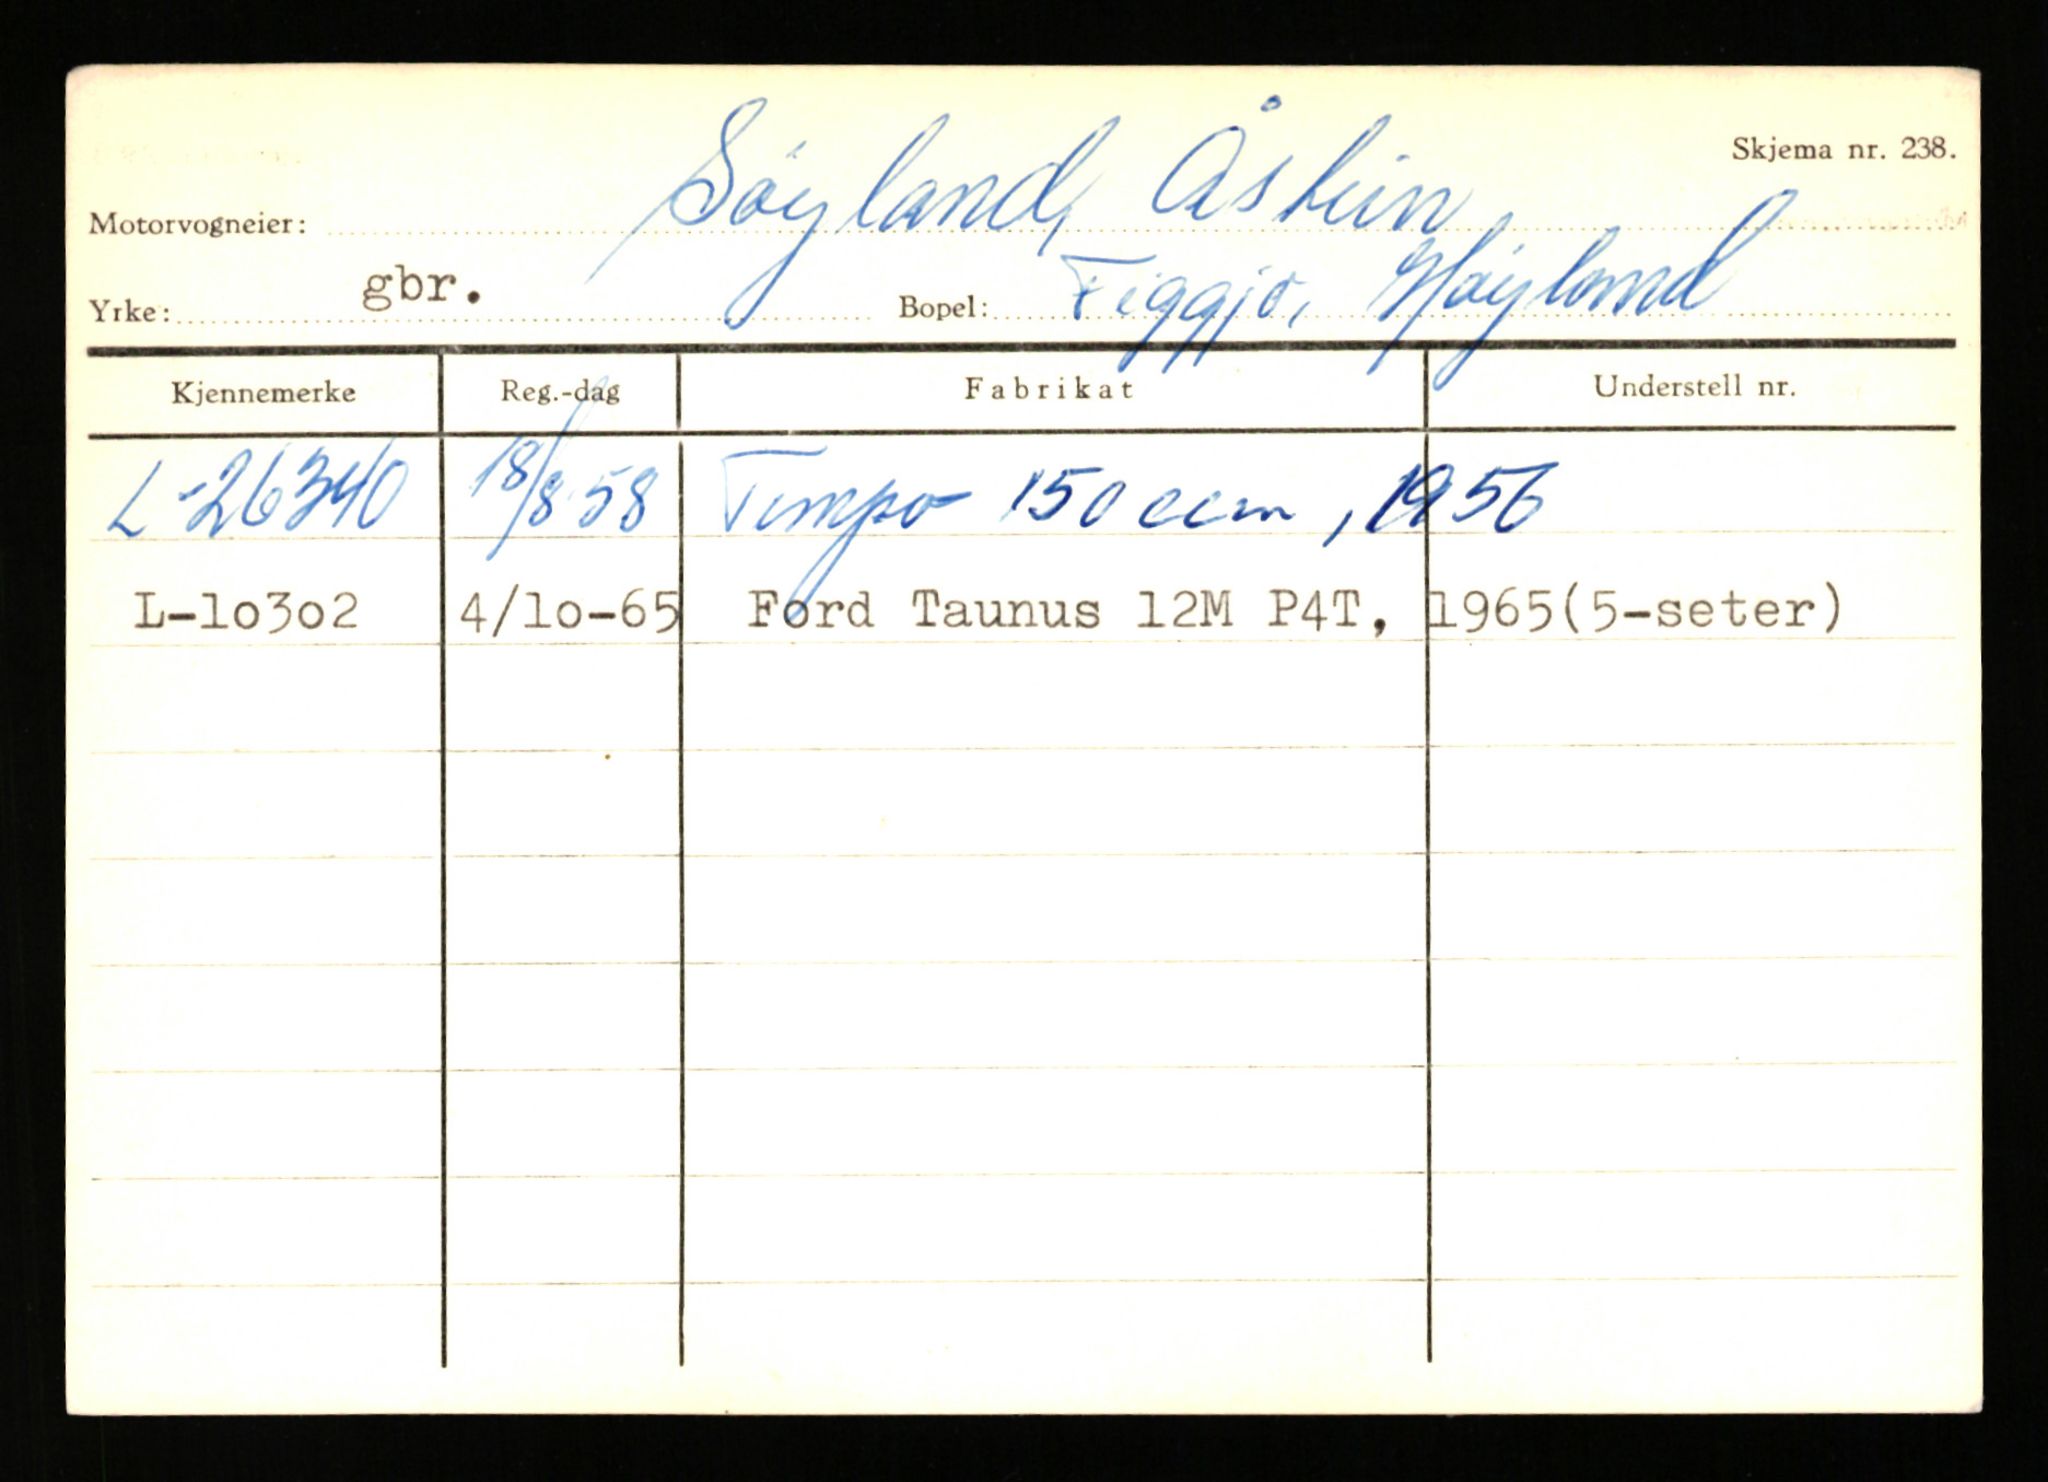 Skjema nr. 238.
Motorvogneier: Søyland, Åstein
Yrke: gbr. Bopel: Figgjo, Høyland
Kjennemerke Reg.-dag Fabrikat Understell nr.
L-26340 18/8-58 Tempo 150 ccm, 1956
L-lo3o2 4/lo-65 Ford Taunus 12M P4T, 1965(5-seter)